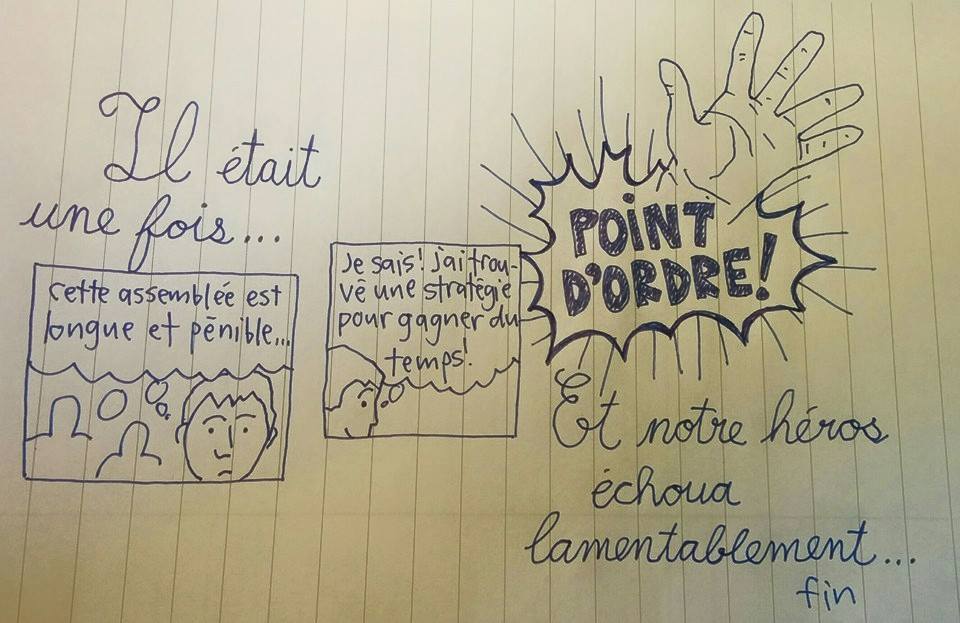 Il était
une fois...
Cette assemblée est
longue et pénible...
Je sais! j'ai trou-
vé une stratégie
pour gagner du
temps!
POINT
D'ORDRE!
Et notre héros
échoua
lamentablement...
fin